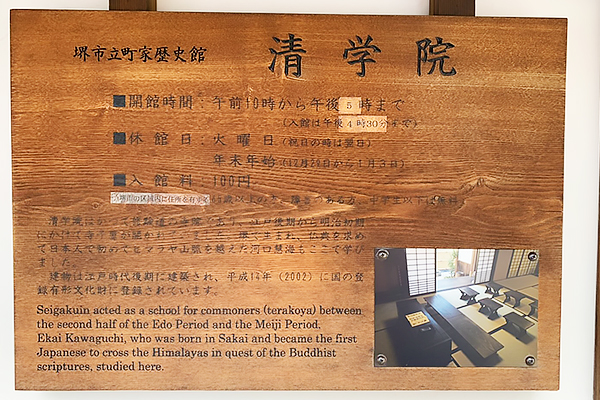 堺市立町家歴史館 清学院
■開館時間：午前10時から午後5時まで
(入館は午後4時30分まで)
■休館日：火曜日(祝日の時は翌日)
年末年始(12月29日から1月3日)
■入館料 100円
清学院は
江戸後期から明治初期
にかけて寺子屋が
を求め
て日本人で初めてヒマラヤ山脈を越えた河口慧海もここで学び
ました。
建物は江戸時代後期に建築され、平成14年（2002）に国の登
録有形文化財に登録されています。
Seigakuin acted as a school for commoners (terakoya) between
the second half of the Edo Period and the Meiji Period.
Ekai Kawaguchi, who was born in Sakai and became the first
Japanese to cross the Himalayas in quest of the Buddhist
scriptures, studied here.